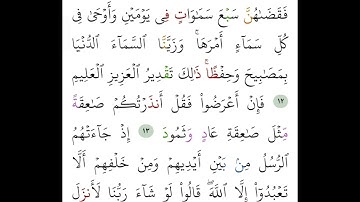 فَقَضَىٰهُنَّ سَبۡعَ سَمَٰوَاتٖ فِي يَوۡمَيۡنِ وَأَوۡحَىٰ فِي
كُلِّ سَمَآءٍ أَمۡرَهَاۚ وَزَيَّنَّا ٱلسَّمَآءَ ٱلدُّنۡيَا
بِمَصَٰبِيحَ وَحِفۡظٗاۚ ذَٰلِكَ تَقۡدِيرُ ٱلۡعَزِيزِ ٱلۡعَلِيمِ
١٢ فَإِنۡ أَعۡرَضُواْ فَقُلۡ أَنذَرۡتُكُمۡ صَٰعِقَةٗ
مِّثۡلَ صَٰعِقَةِ عَادٖ وَثَمُودَ ١٣ إِذۡ جَآءَتۡهُمُ
ٱلرُّسُلُ مِنۢ بَيۡنِ أَيۡدِيهِمۡ وَمِنۡ خَلۡفِهِمۡ أَلَّا
تَعۡبُدُوٓاْ إِلَّا ٱللَّهَۖ قَالُواْ لَوۡ شَآءَ رَبُّنَا لَأَنزَلَ